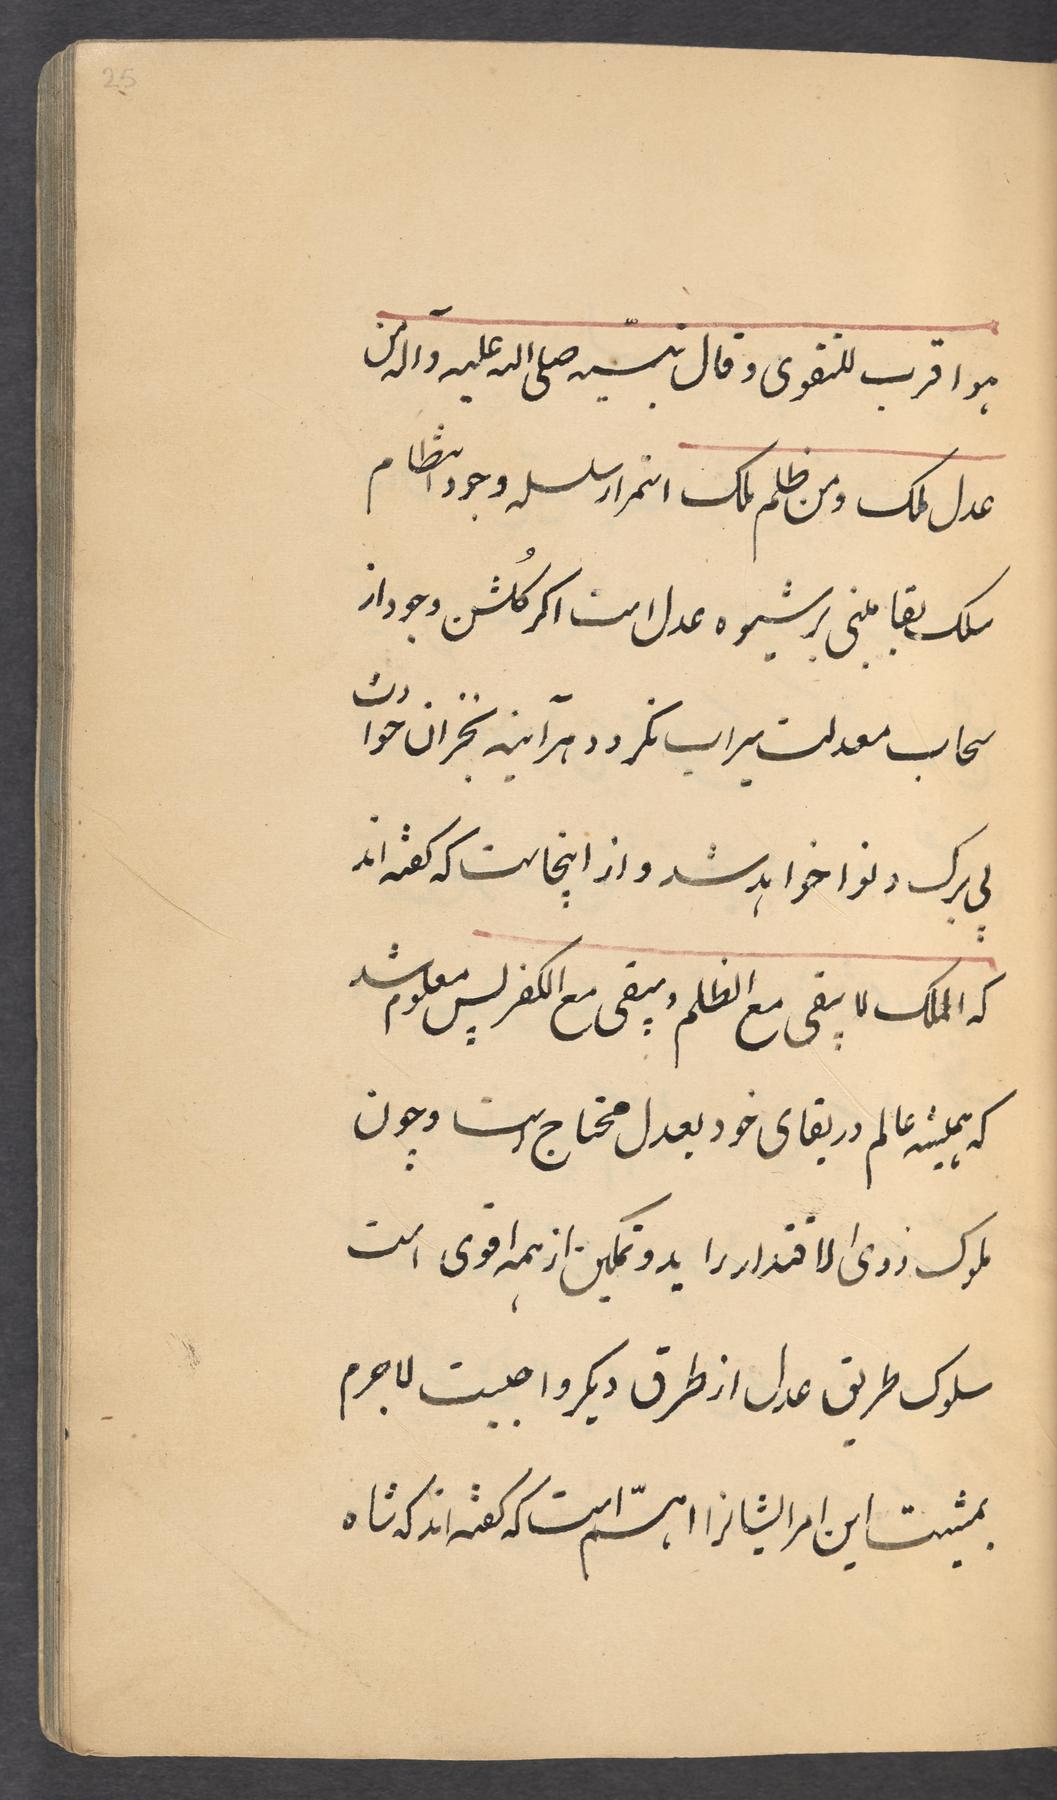 25
هو اقرب للتقوی و قال نبیّه صلی الله علیه و آله من
عدل ملک و من ظلم هلک استمرار سلسله وجود انتظام
سلک بقا مبنی بر شیوه عدل است اکر کُلشن وجود از
سحاب معدلت سیراب نکردد هرآینه بخزان حوادث
پی برک و نوا خواهد شد و از اینجاست که کفته اند
که الملک لا یبقی مع الظلم و یبقی مع الکفر پس معلوم شد
که همیشه عالم در بقای خود بعدل محتاج است و چون
ملوک ذوی الاقتدار را ید و تمکین از همه اقوی است
سلوک طریق عدل از طرق دیکر واجبست لاجرم
بمشیت این امر ایشانرا اهمّ است که کفته اند که شاه